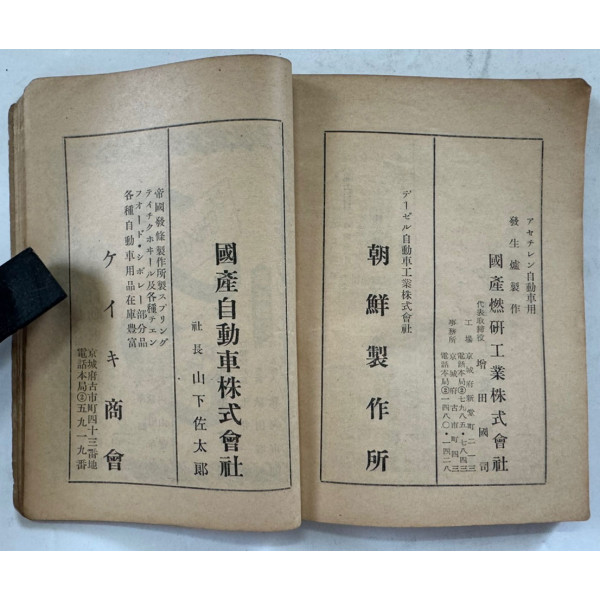 アセチレン自動車用
發生爐製作
國產燃研工業株式會社
代表取締役 增田國司
工場 京城府新堂町二一三
電話本局②七九八五・七八四三
事務所 京城府古市町四三
電話本局②一四八〇・一四二八
デーゼル自動車工業株式會社
朝鮮製作所
國產自動車株式會社
社長 山下佐太郎
帝國發條製作所製スプリング
テイチクホヰール及各種チエン
フオード・シボレー部分品
各種自動車用品在庫豊富
ケイキ商會
京城府古市町四十三番地
電話本局②五九一九番